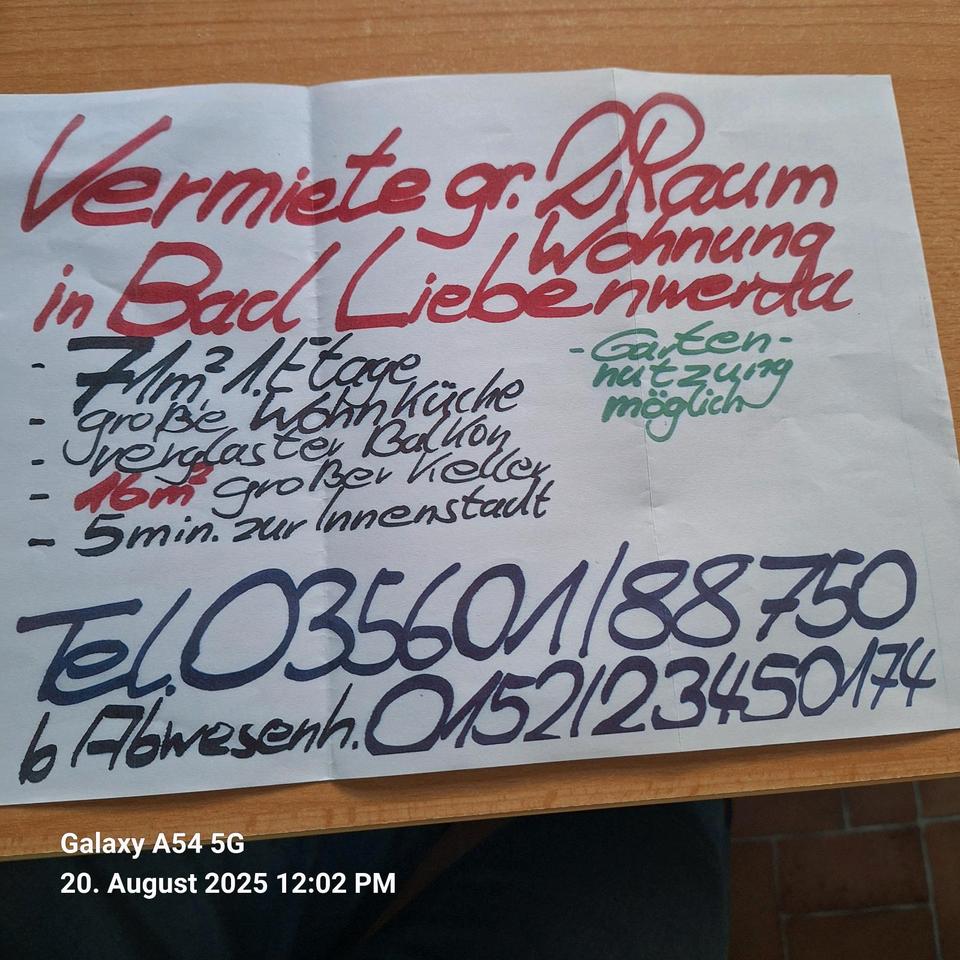 Vermiete gr. 2 Raum
Wohnung
in Bad Liebenwerda
- 71m² 1. Etage
- große Wohnküche
- verglaster Balkon
- 16m² großer Keller
- 5min. zur Innenstadt
- Garten-
nutzung
möglich
Tel. 035601/88750
b Abwesenh. 0152/23450174
Galaxy A54 5G
20. August 2025 12:02 PM